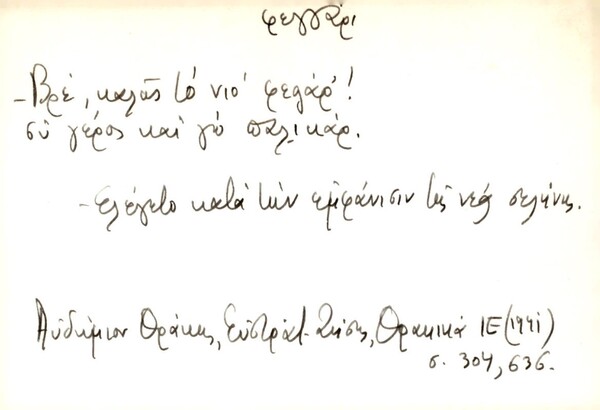 φεγγάρι
- Βρέ, καλῶς τό νιό φεγάρ'!
σύ γέρος καί γώ παλικάρ.
- Ἐλέγετο κατά τήν ἐμφάνισιν τῆς νέας σελήνης.
Αὐδήμιον Θράκης, Εὐστράτ. Ζήσης, Θρακικά ΙΕ (1941)
σ. 304, 636.